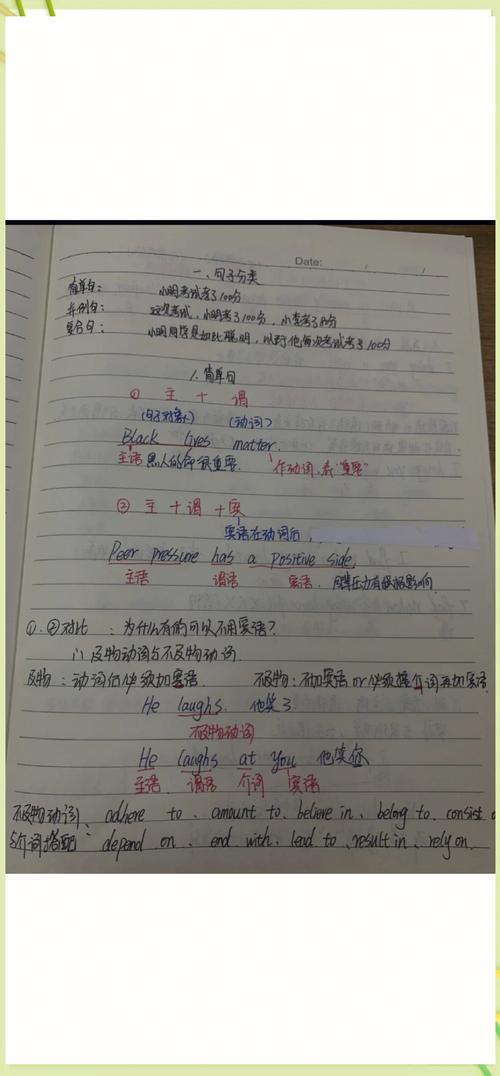 Date: / /
一、句子分类
简单句: 小明考试考了100分
并列句: 这次考试,小明考了100分,小李考了80分
复合句: 小明同学是如此聪明,以至于他每次考试考了100分
1. 简单句
① 主 + 谓
(动词)
Black lives matter.
主语 黑人的命很重要. 作动词,表"重要"
② 主 + 谓 + 宾
宾语在动词后,
Peer pressure has a positive side.
主语 谓语 宾语. 同辈压力有积极影响
①.②对比: 为什么有的可以不用宾语?
(1) 及物动词与不及物动词.
及物: 动词后必须加宾语. 不及物: 不加宾语 or 必须接介词再加宾语.
He laughs. 他笑了.
不及物动词
He laughs at you 他笑你
主语 谓语 介词 宾语
不及物动词 adhere to、amount to、believe in、belong to、consist
与介词搭配: depend on、end with、lead to、result in、rely on